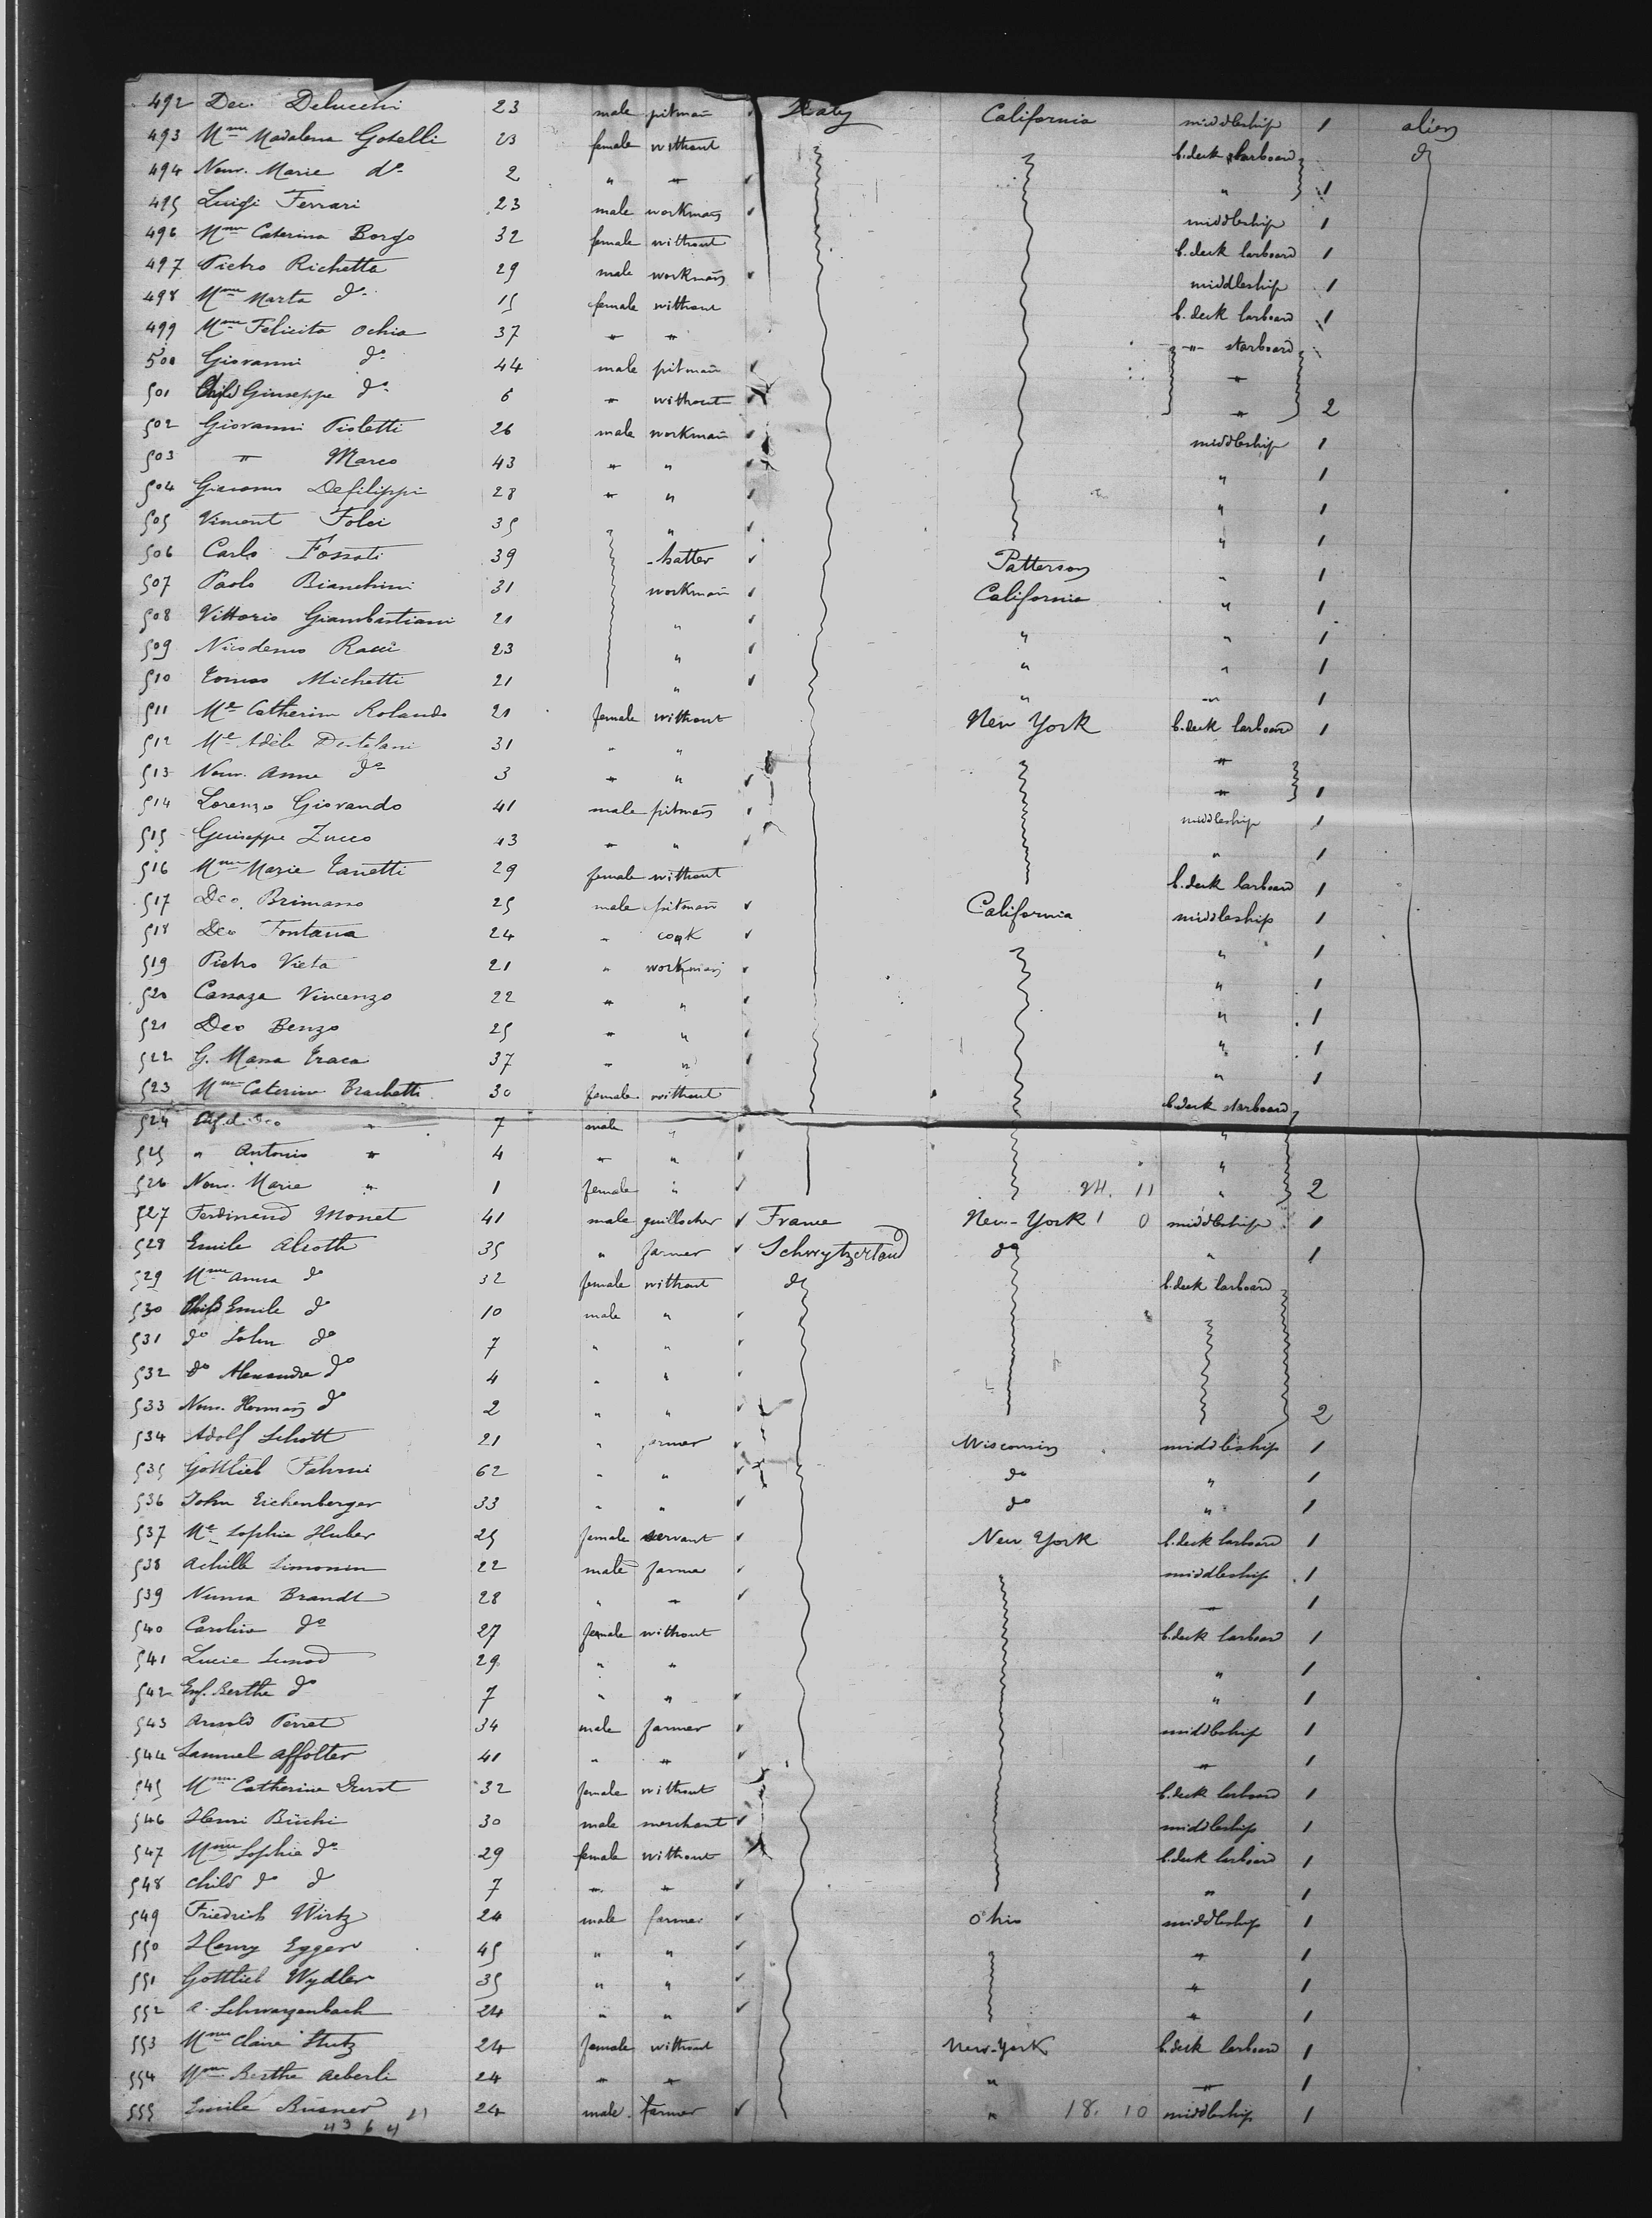 492 Deo. Delucchi 23 male pitman Italy California middleship 1 alien
493 Mme Madalena Gotelli 23 female without b.deck starboard do
494 Nour. Marie do 2 " " " 1
495 Luigi Ferrari 23 male workman middleship 1
496 Mme Caterina Borgo 32 female without b.deck larboard 1
497 Pietro Richetta 29 male workman middleship 1
498 Mme Marta do 15 female without b.deck larboard 1
499 Mme Felicita Ochia 37 " " " starboard
500 Giovanni do 44 male pitman "
501 Child Giuseppe do 6 " without " 2
502 Giovanni Pioletti 26 male workman middleship 1
503 " Marco 43 " " " 1
504 Giacomo Defilippi 28 " " " 1
505 Vincent Folci 35 " " " 1
506 Carlo Fossati 39 hatter Patterson " 1
507 Paolo Bianchini 31 workman California " 1
508 Vittorio Giambastiani 21 " " " 1
509 Nicodemo Racci 23 " " " 1
510 Tomaso Michetti 21 " " " 1
511 Me Catherine Rolando 21 female without New York b.deck larboard 1
512 Me Adèle 31 " " "
513 Nour. Anna do 3 " " " 1
514 Lorenzo Giovando 41 male pitman middleship 1
515 Guiseppe Zucco 43 " " " 1
516 Mme Marie Tanetti 29 female without b.deck larboard 1
517 Deo. Brimasso 25 male pitman California middleship 1
518 Deo Fontana 24 " cook " 1
519 Pietro Vieta 21 " workman " 1
520 Cassaza Vincenzo 22 " " " 1
521 Deo Benzo 25 " " " 1
522 G. Massa Traca 37 " " " 1
523 Mme Caterina Brachetti 30 female without b.deck starboard
524 " 7 male " "
525 " Antonio " 4 " " "
526 Nour. Marie " 1 female " 24. 11 " 2
527 Ferdinand Monet 41 male guillocher France New-York 1 0 middleship 1
528 Emile Alioth 35 " farmer Schwytzerland do " 1
529 Mme Anna do 32 female without do b.deck larboard
530 Child Emile do 10 male "
531 do John do 7 " "
532 do Alexandre do 4 " "
533 Nour. Hermann do 2 " " 2
534 Adolf Schott 21 " farmer Wisconsin middleship 1
535 Gottlieb Fahrni 62 " " do " 1
536 John Eichenberger 33 " " do " 1
537 Me Sophie Huber 25 female servant New York b.deck larboard 1
538 Achille Simonin 22 male farmer middleship 1
539 Numa Brandt 28 " " " 1
540 Caroline do 27 female without b.deck larboard 1
541 Lucie Junod 29 " " " 1
542 Enf. Berthe do 7 " " " 1
543 Arnold Perret 34 male farmer middleship 1
544 Samuel Affolter 41 " " " 1
545 Mme Catherine Durst 32 female without b.deck larboard 1
546 Henri Büchi 30 male merchant middleship 1
547 Mme Sophie do 29 female without b.deck larboard 1
548 Child do do 7 " " " 1
549 Friedrich Wirtz 24 male farmer Ohio middleship 1
550 Henry Egger 45 " " " 1
551 Gottlieb Wydler 35 " " " 1
552 A. Schwarzenbach 24 " " " 1
553 Mme Claire Stutz 24 female without New-York b.deck larboard 1
554 Mme Berthe Aeberli 24 " " " " 1
555 Emile Büsner 24 male farmer " 18. 10 middleship 1